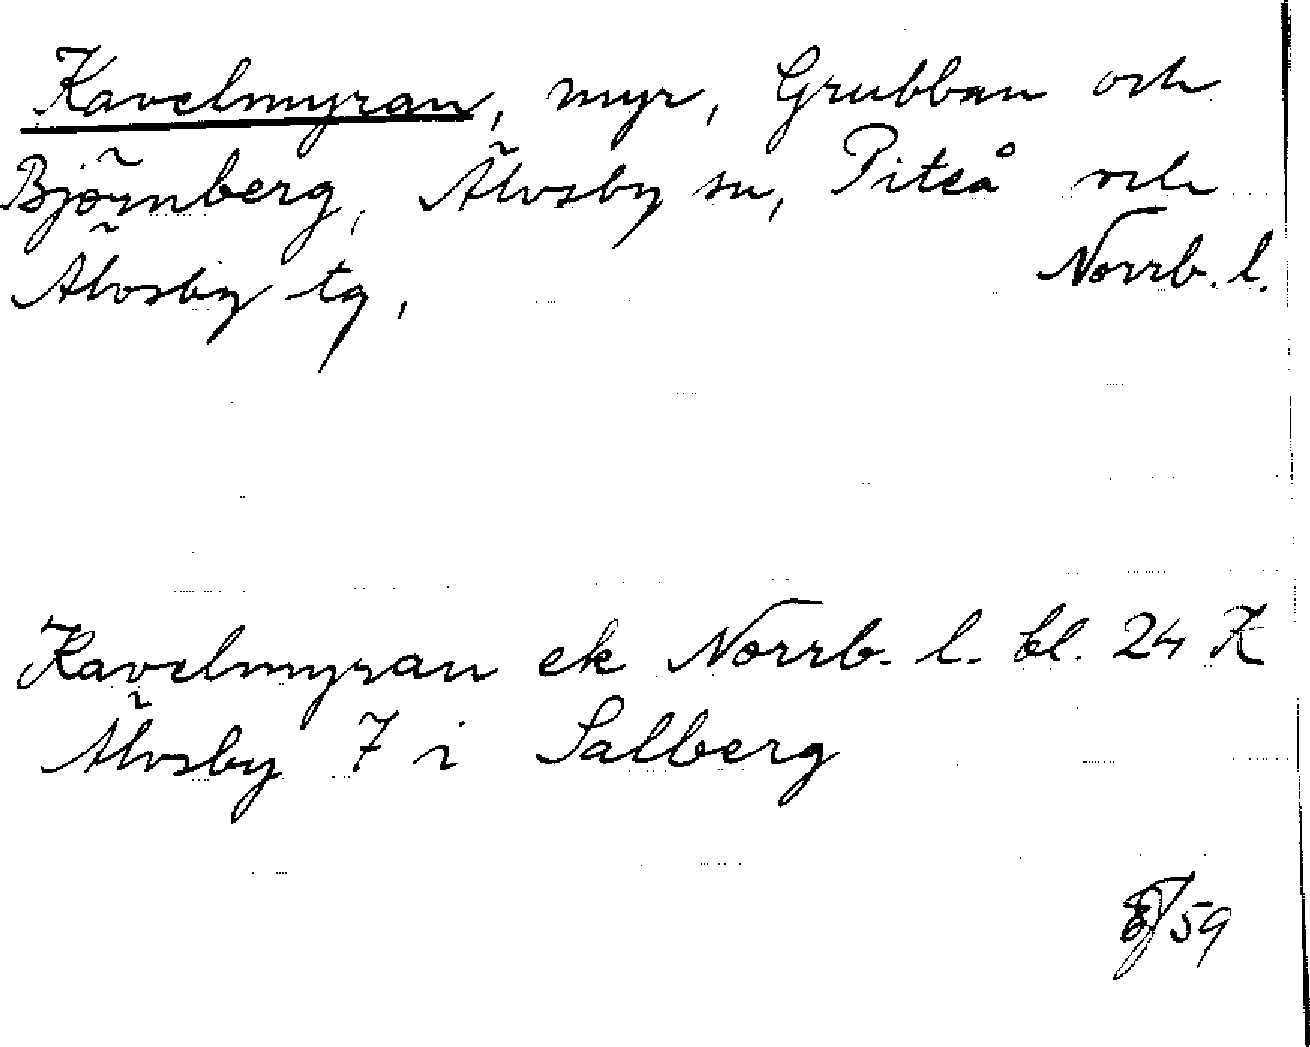 Kavelmyran, myr, Grubban och
Björnberg, Älvsby sn, Piteå och
Älvsby tg, Norrb. l.
Kavelmyran ek Norrb. l. bl. 24 K
Älvsby 7 i Salberg
59